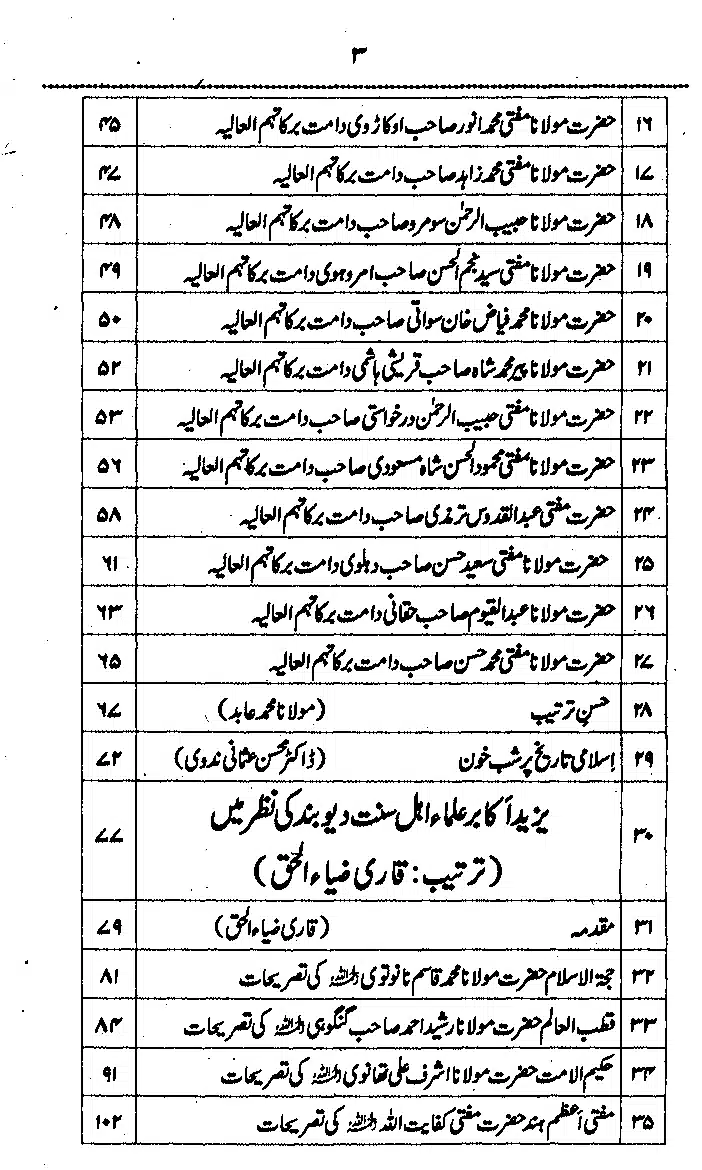 ۳
۱۶ حضرت مولانا مفتی محمد انور صاحب اوکاڑوی دامت برکاتہم العالیہ ۴۵
۱۷ حضرت مولانا مفتی محمد زاہد صاحب دامت برکاتہم العالیہ ۴۷
۱۸ حضرت مولانا حبیب الرحمٰن سومرو صاحب دامت برکاتہم العالیہ ۴۸
۱۹ حضرت مولانا مفتی سید نجم الحسن صاحب امروہوی دامت برکاتہم العالیہ ۴۹
۲۰ حضرت مولانا محمد فیاض خان سواتی صاحب دامت برکاتہم العالیہ ۵۰
۲۱ حضرت مولانا پیر محمد شاہ صاحب قریشی ہاشمی دامت برکاتہم العالیہ ۵۲
۲۲ حضرت مولانا مفتی حبیب الرحمٰن درخواستی صاحب دامت برکاتہم العالیہ ۵۳
۲۳ حضرت مولانا مفتی محمود الحسن شاہ مسعودی صاحب دامت برکاتہم العالیہ ۵۶
۲۴ حضرت مفتی عبدالقدوس ترمذی صاحب دامت برکاتہم العالیہ ۵۸
۲۵ حضرت مولانا مفتی سعید حسن صاحب دہلوی دامت برکاتہم العالیہ ۶۱
۲۶ حضرت مولانا عبدالقیوم صاحب حقانی دامت برکاتہم العالیہ ۶۳
۲۷ حضرت مولانا مفتی محمد حسن صاحب دامت برکاتہم العالیہ ۶۵
۲۸ حسنِ ترتیب (مولانا محمد عابد) ۶۷
۲۹ اسلامی تاریخ پر شب خون (ڈاکٹر محسن عثمانی ندوی) ۷۲
۳۰ یزید اکابر علماء اہل سنت دیوبند کی نظر میں ۷۷
(ترتیب: قاری ضیاء الحق)
۳۱ مقدمہ (قاری ضیاء الحق) ۷۹
۳۲ حجۃ الاسلام حضرت مولانا محمد قاسم نانوتوی رحمۃ اللہ کی تصریحات ۸۱
۳۳ قطب العالم حضرت مولانا رشید احمد صاحب گنگوہی رحمۃ اللہ کی تصریحات ۸۴
۳۴ حکیم الامت حضرت مولانا اشرف علی تھانوی رحمۃ اللہ کی تصریحات ۹۱
۳۵ مفتی اعظم ہند حضرت مفتی کفایت اللہ رحمۃ اللہ کی تصریحات ۱۰۲